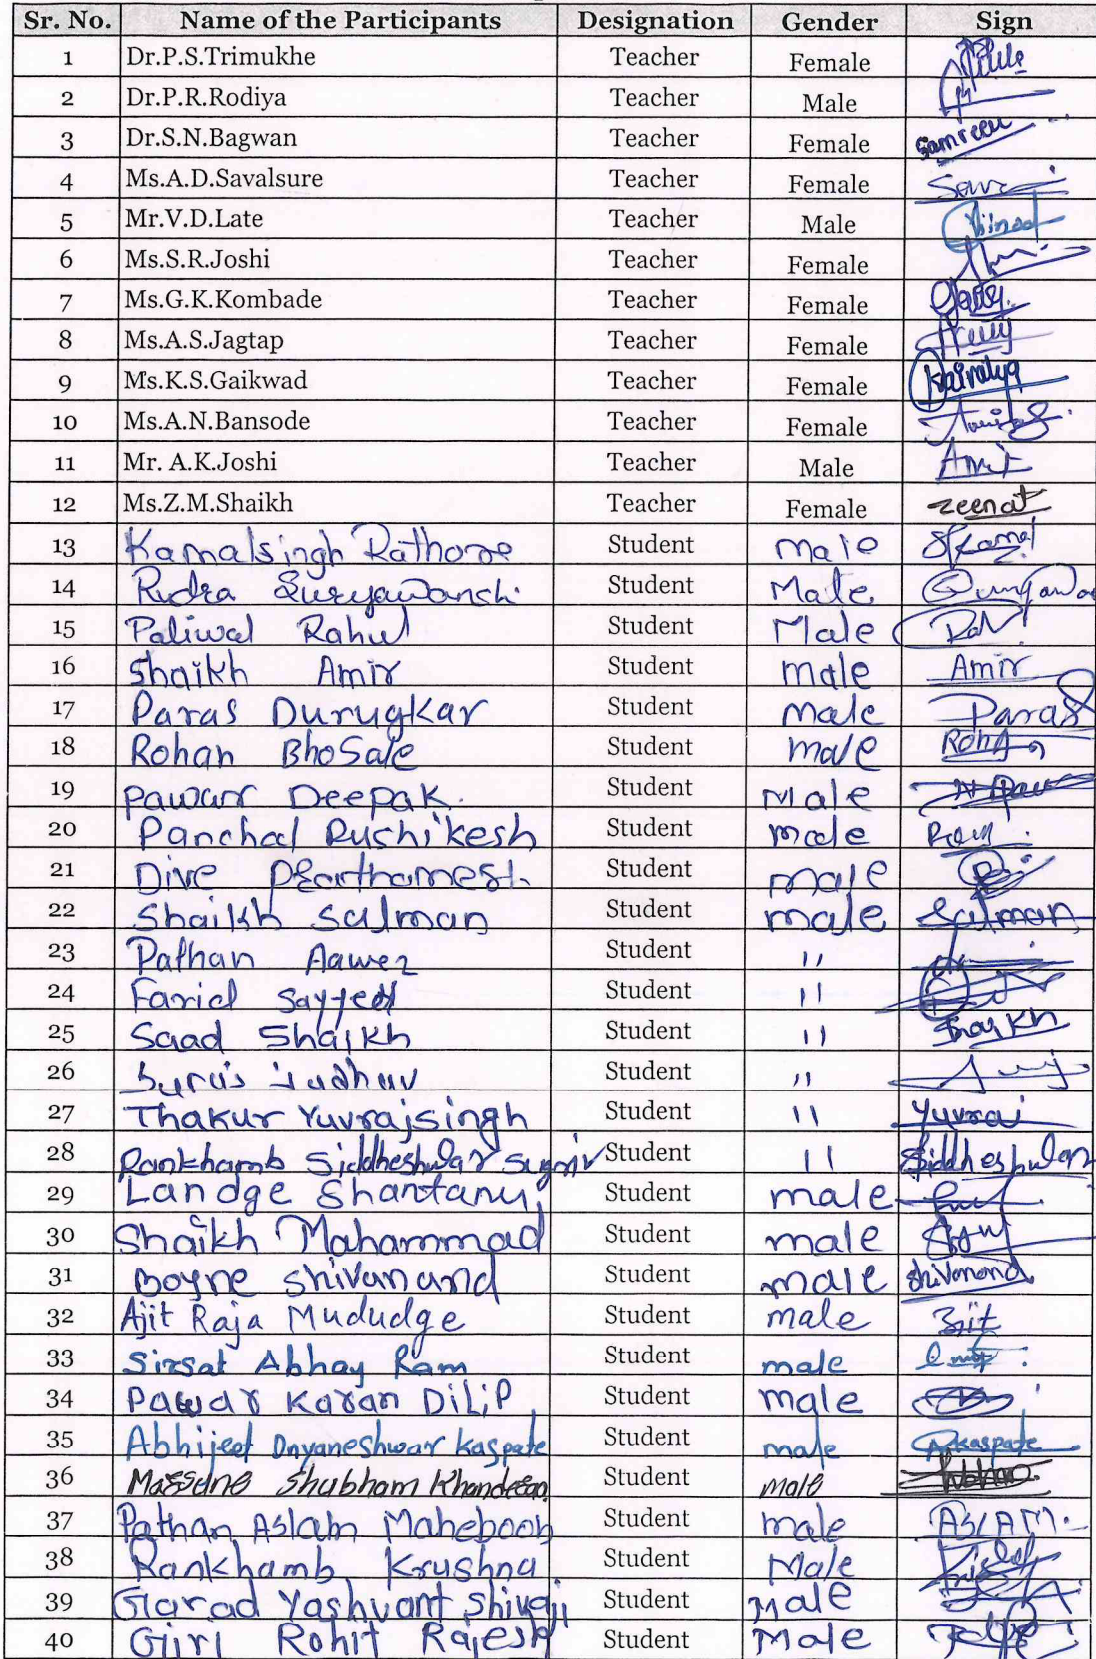 Sr. No. Name of the Participants Designation Gender Sign
1 Dr.P.S.Trimukhe Teacher Female
2 Dr.P.R.Rodiya Teacher Male
3 Dr.S.N.Bagwan Teacher Female Samreen
4 Ms.A.D.Savalsure Teacher Female
5 Mr.V.D.Late Teacher Male Vinod
6 Ms.S.R.Joshi Teacher Female
7 Ms.G.K.Kombade Teacher Female
8 Ms.A.S.Jagtap Teacher Female
9 Ms.K.S.Gaikwad Teacher Female Kaivalya
10 Ms.A.N.Bansode Teacher Female
11 Mr. A.K.Joshi Teacher Male Amit
12 Ms.Z.M.Shaikh Teacher Female zeenat
13 Kamalsingh Rathore Student Male
14 Rudra Suryawanshi Student Male
15 Paliwal Rahul Student Male
16 Shaikh Amir Student male Amir
17 Paras Durugkar Student male Paras
18 Rohan Bhosale Student male
19 Pawar Deepak. Student Male
20 Panchal Rushikesh Student male
21 Dive Student male
22 Shaikh Salman Student male Salman
23 Pathan Aawez Student "
24 Farid Sayyed Student "
25 Saad Shaikh Student " Shaikh
26 Student "
27 Thakur Yuvrajsingh Student " Yuvraj
28 Rankhamb Siddheshwar Student " Siddheshwar
29 Landge Shantanu Student male
30 Shaikh Mahammad Student male
31 Boyne Shivanand Student male Shivanand
32 Ajit Raja Mududge Student male
33 Sirsat Abhay Ram Student male
34 Pawar Karan Dilip Student male
35 Abhijeet Dnyaneshwar Kaspate Student male Akaspate
36 Massune Shubham Student Male
37 Pathan Aslam Maheboob Student male ASLAM
38 Rankhamb Krushna Student Male
39 Garad Yashvant Shivaji Student Male
40 Giri Rohit Rajesh Student Male